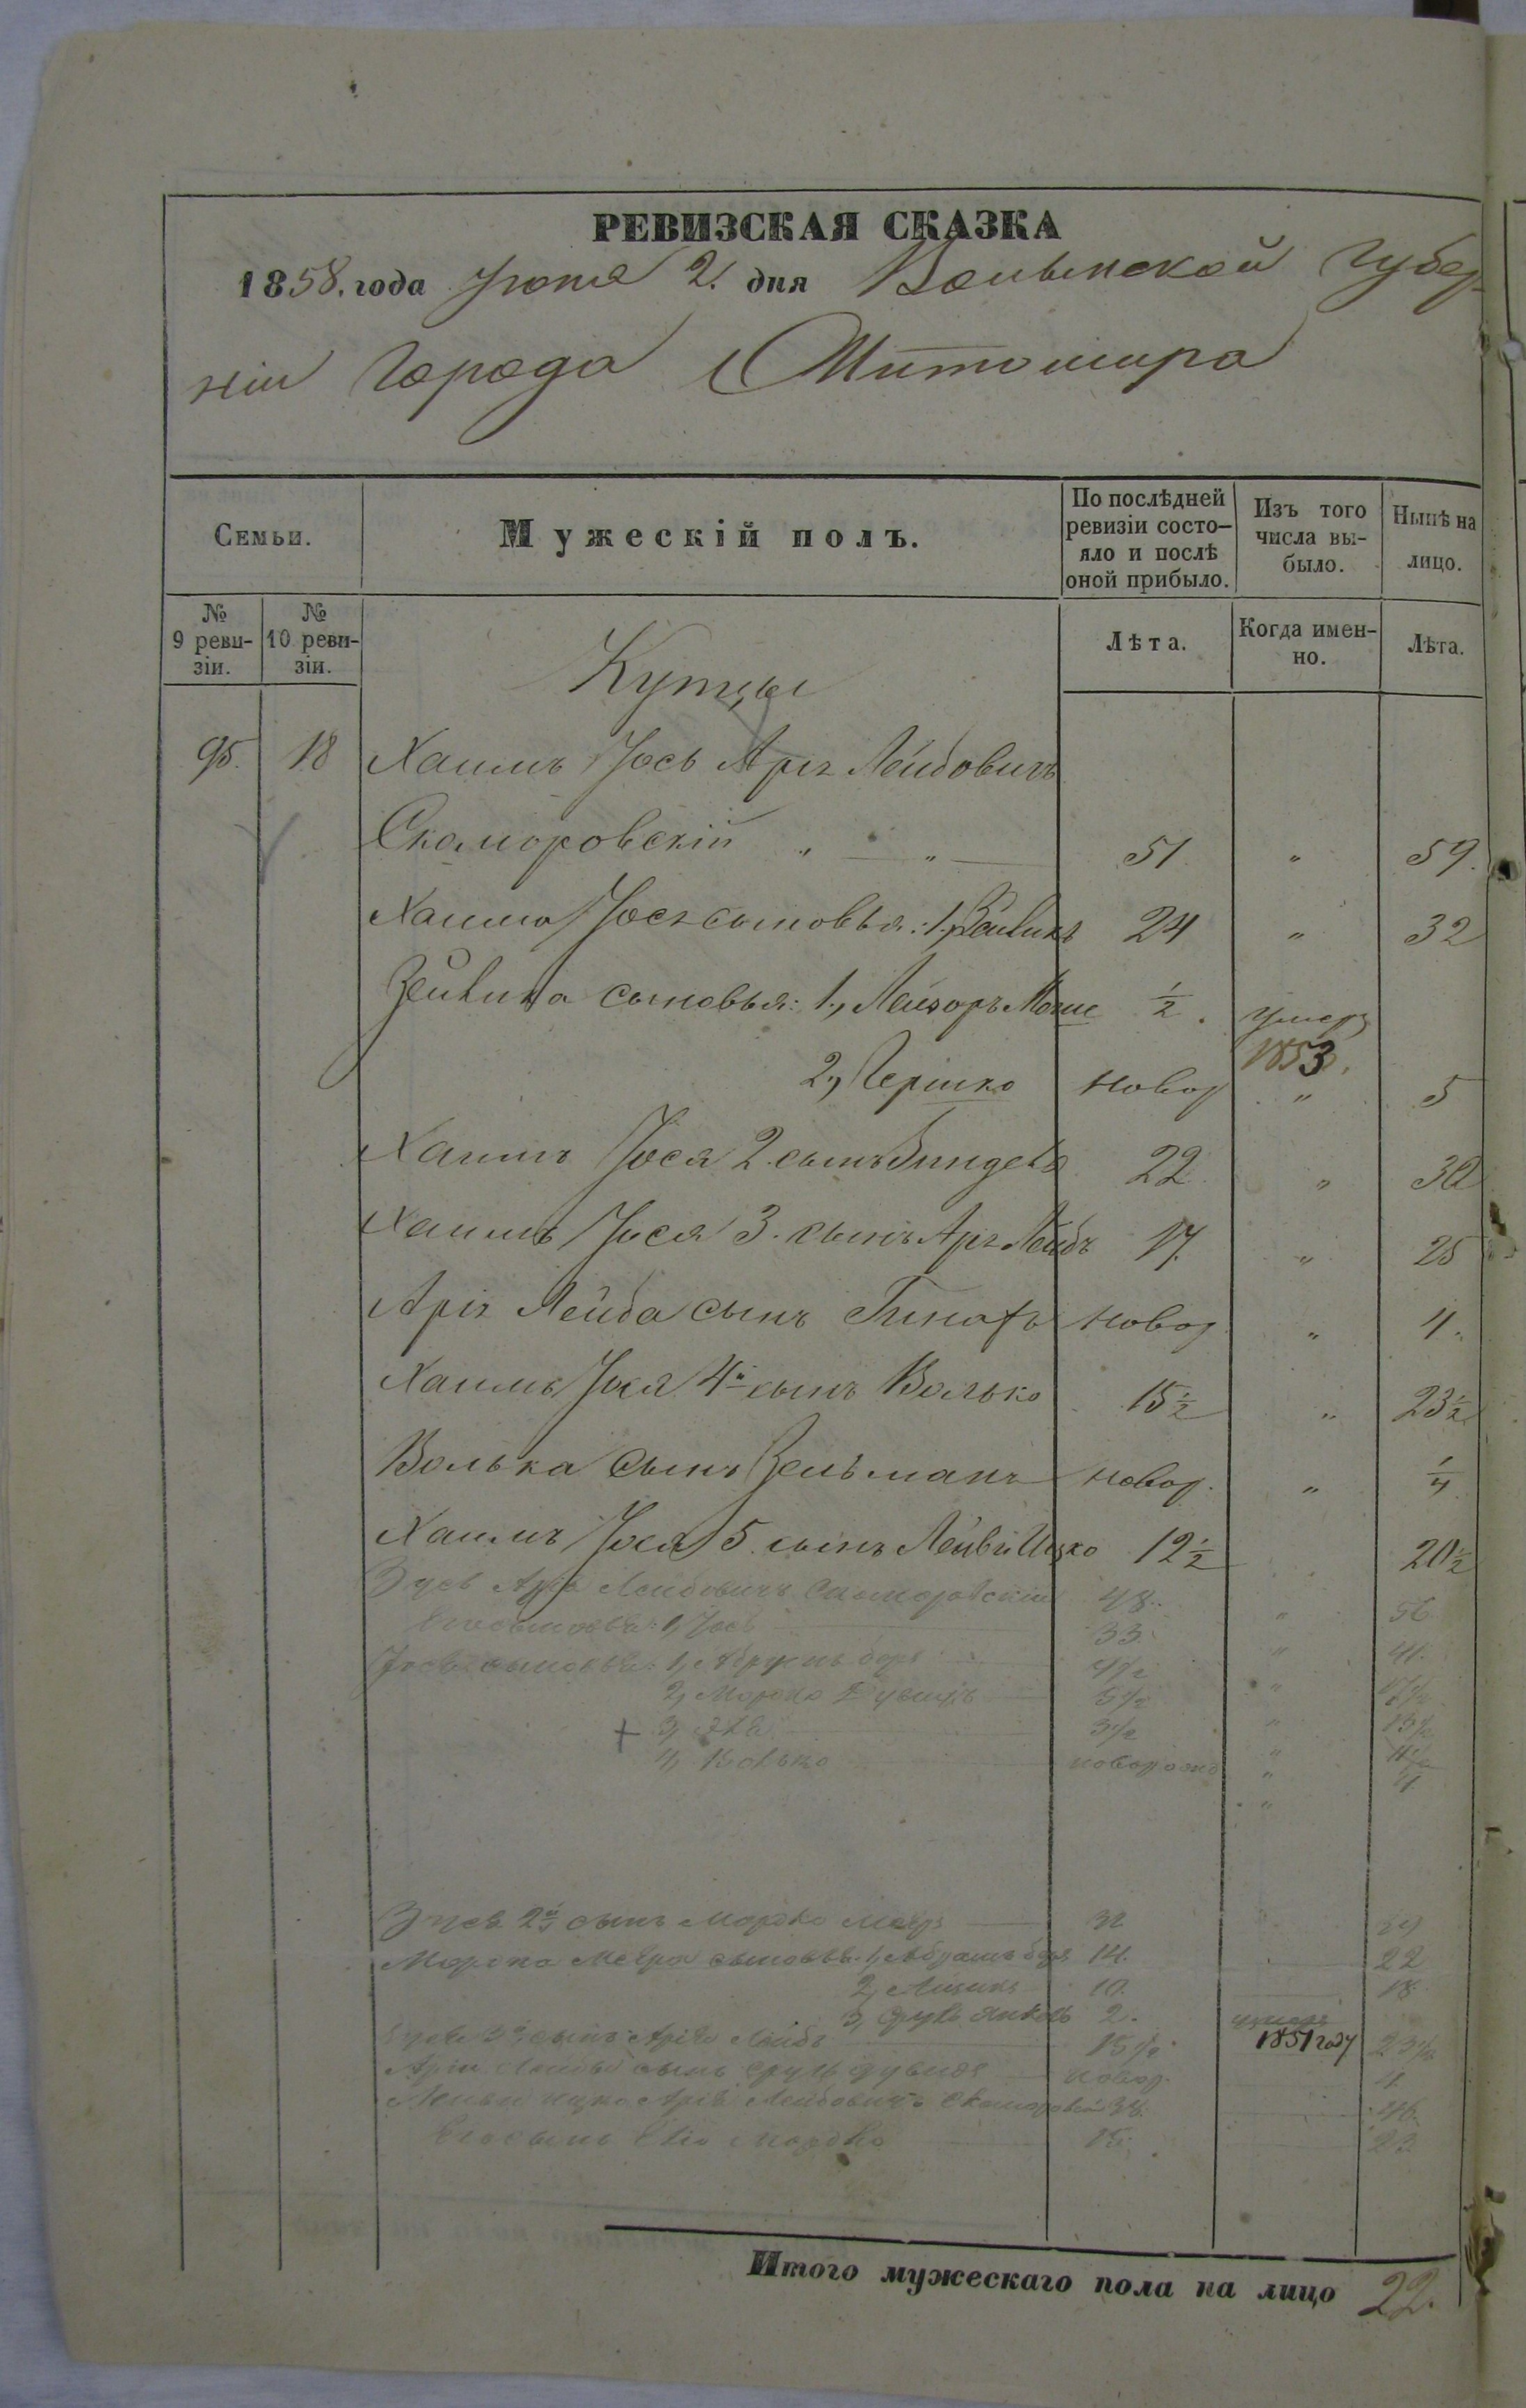 РЕВИЗСКАЯ СКАЗКА
1858. года Июня 2. дня Волынской Губер-
ніи Города Житомира
Семьи.
Мужескій полъ.
По послѣдней ревизіи состо-
яло и послѣ оной прибыло.
Изъ того числа вы-
было.
Нынѣ на лицо.
№ 9 реви-
зіи.
№ 10 реви-
зіи.
Лѣта.
Когда имен-
но.
Лѣта.
Купцы
95. 18 Хаимъ Іось Аріе Лейбовичъ
Скаморовскій " — " — 51 " 59.
Хаима Іося сыновья: 1, Зейликъ 24 " 32
Зейлика сыновья: 1, Лейзоръ Моше ½. умеръ 1853.
2, Гершко новор " 5
Хаимъ Іося 2. сынъ Зинделъ 22 " 30
Хаимъ Іося 3. сынъ Аріе Лейбъ 17. " 25
Аріе Лейба сынъ новор " 4.
Хаимъ Іося 4й сынъ Волько 15½ " 23½
Волька сынъ Зельманъ новор. " ¼
Хаимъ Іося 5 сынъ Лейви Ицко 12½ 20½
Зусь Аріе Лейбовичъ Скаморовскій 48. " 56
Его сыновья: 1, Іось 33. " 41.
Іося сыновья: 1,
2, Мордко 5½ "
+ 3, 3½ "
4, Волько новорожд " 4.
Зуся 2й сынъ Мордко Мееръ 32
Мордка Меера сыновья: 1, Абрамъ 14. 22
2, Айзикъ 10. 18
3, Сруль Янкель 2. умеръ 1851 году
сынъ: Аріе Лейбъ 15½ 23½
Аріи Лейбы сынъ Сруль Дувидъ новор. 4.
Лейви Ицко Аріе Лейбовичъ Скаморовскій 38. 46.
Его сынъ Мордко 15. 23
Итого мужескаго пола на лицо 22.